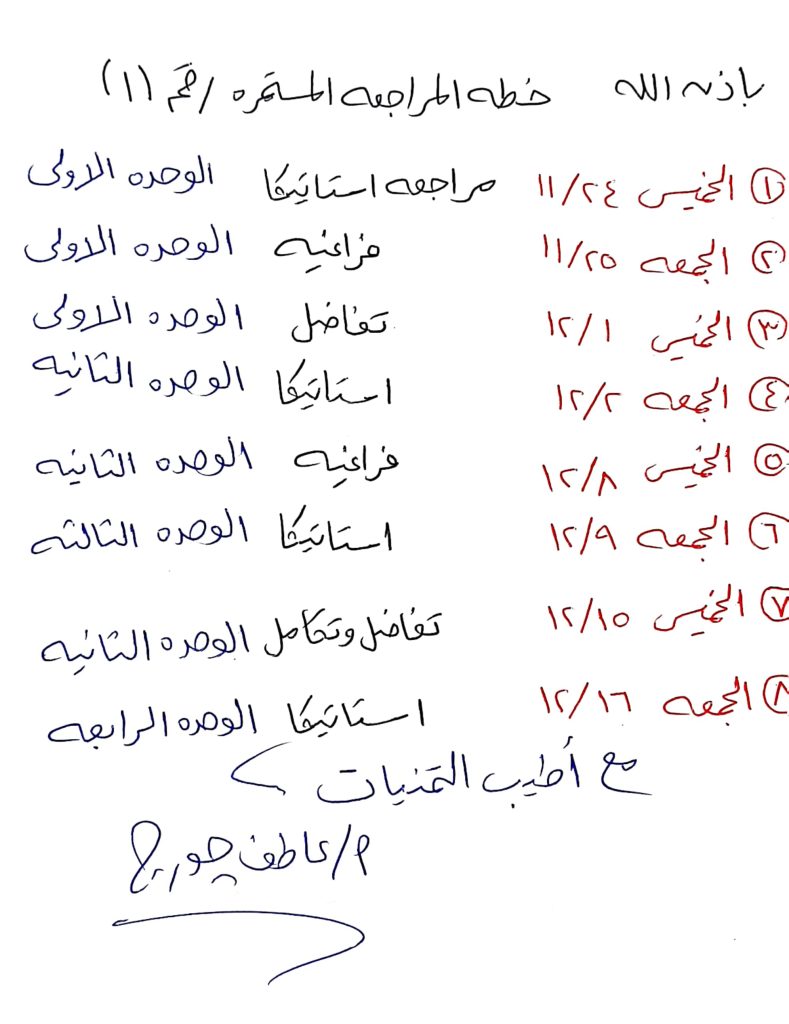 باذن الله خطه المراجعه المستمره رقم (١)
① الخميس ١١/٢٤ مراجعه استاتيكا الوحده الاولى
② الجمعه ١١/٢٥ فراغيه الوحده الاولى
③ الخميس ١٢/١ تفاضل الوحده الاولى
④ الجمعه ١٢/٢ استاتيكا الوحده الثانيه
⑤ الخميس ١٢/٨ فراغيه الوحده الثانيه
⑥ الجمعه ١٢/٩ استاتيكا الوحده الثالثه
⑦ الخميس ١٢/١٥ تفاضل وتكامل الوحده الثانيه
⑧ الجمعه ١٢/١٦ استاتيكا الوحده الرابعه
مع أطيب التمنيات
م/عاطف جورج